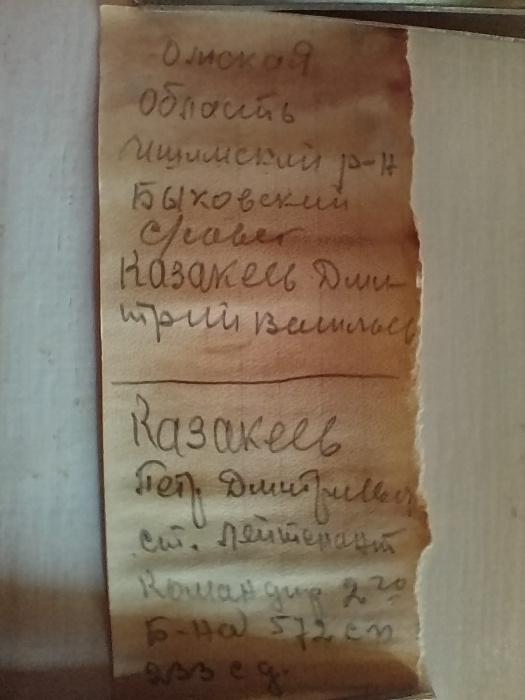 Омская
Область
Ишимский р-н
Быховский
с/совет
Казакеев Дми-
трий Васильев
Казакеев
Петр Дмитриевич
ст. лейтенант
Командир 2го
Б-на 572 сп
233 с д.